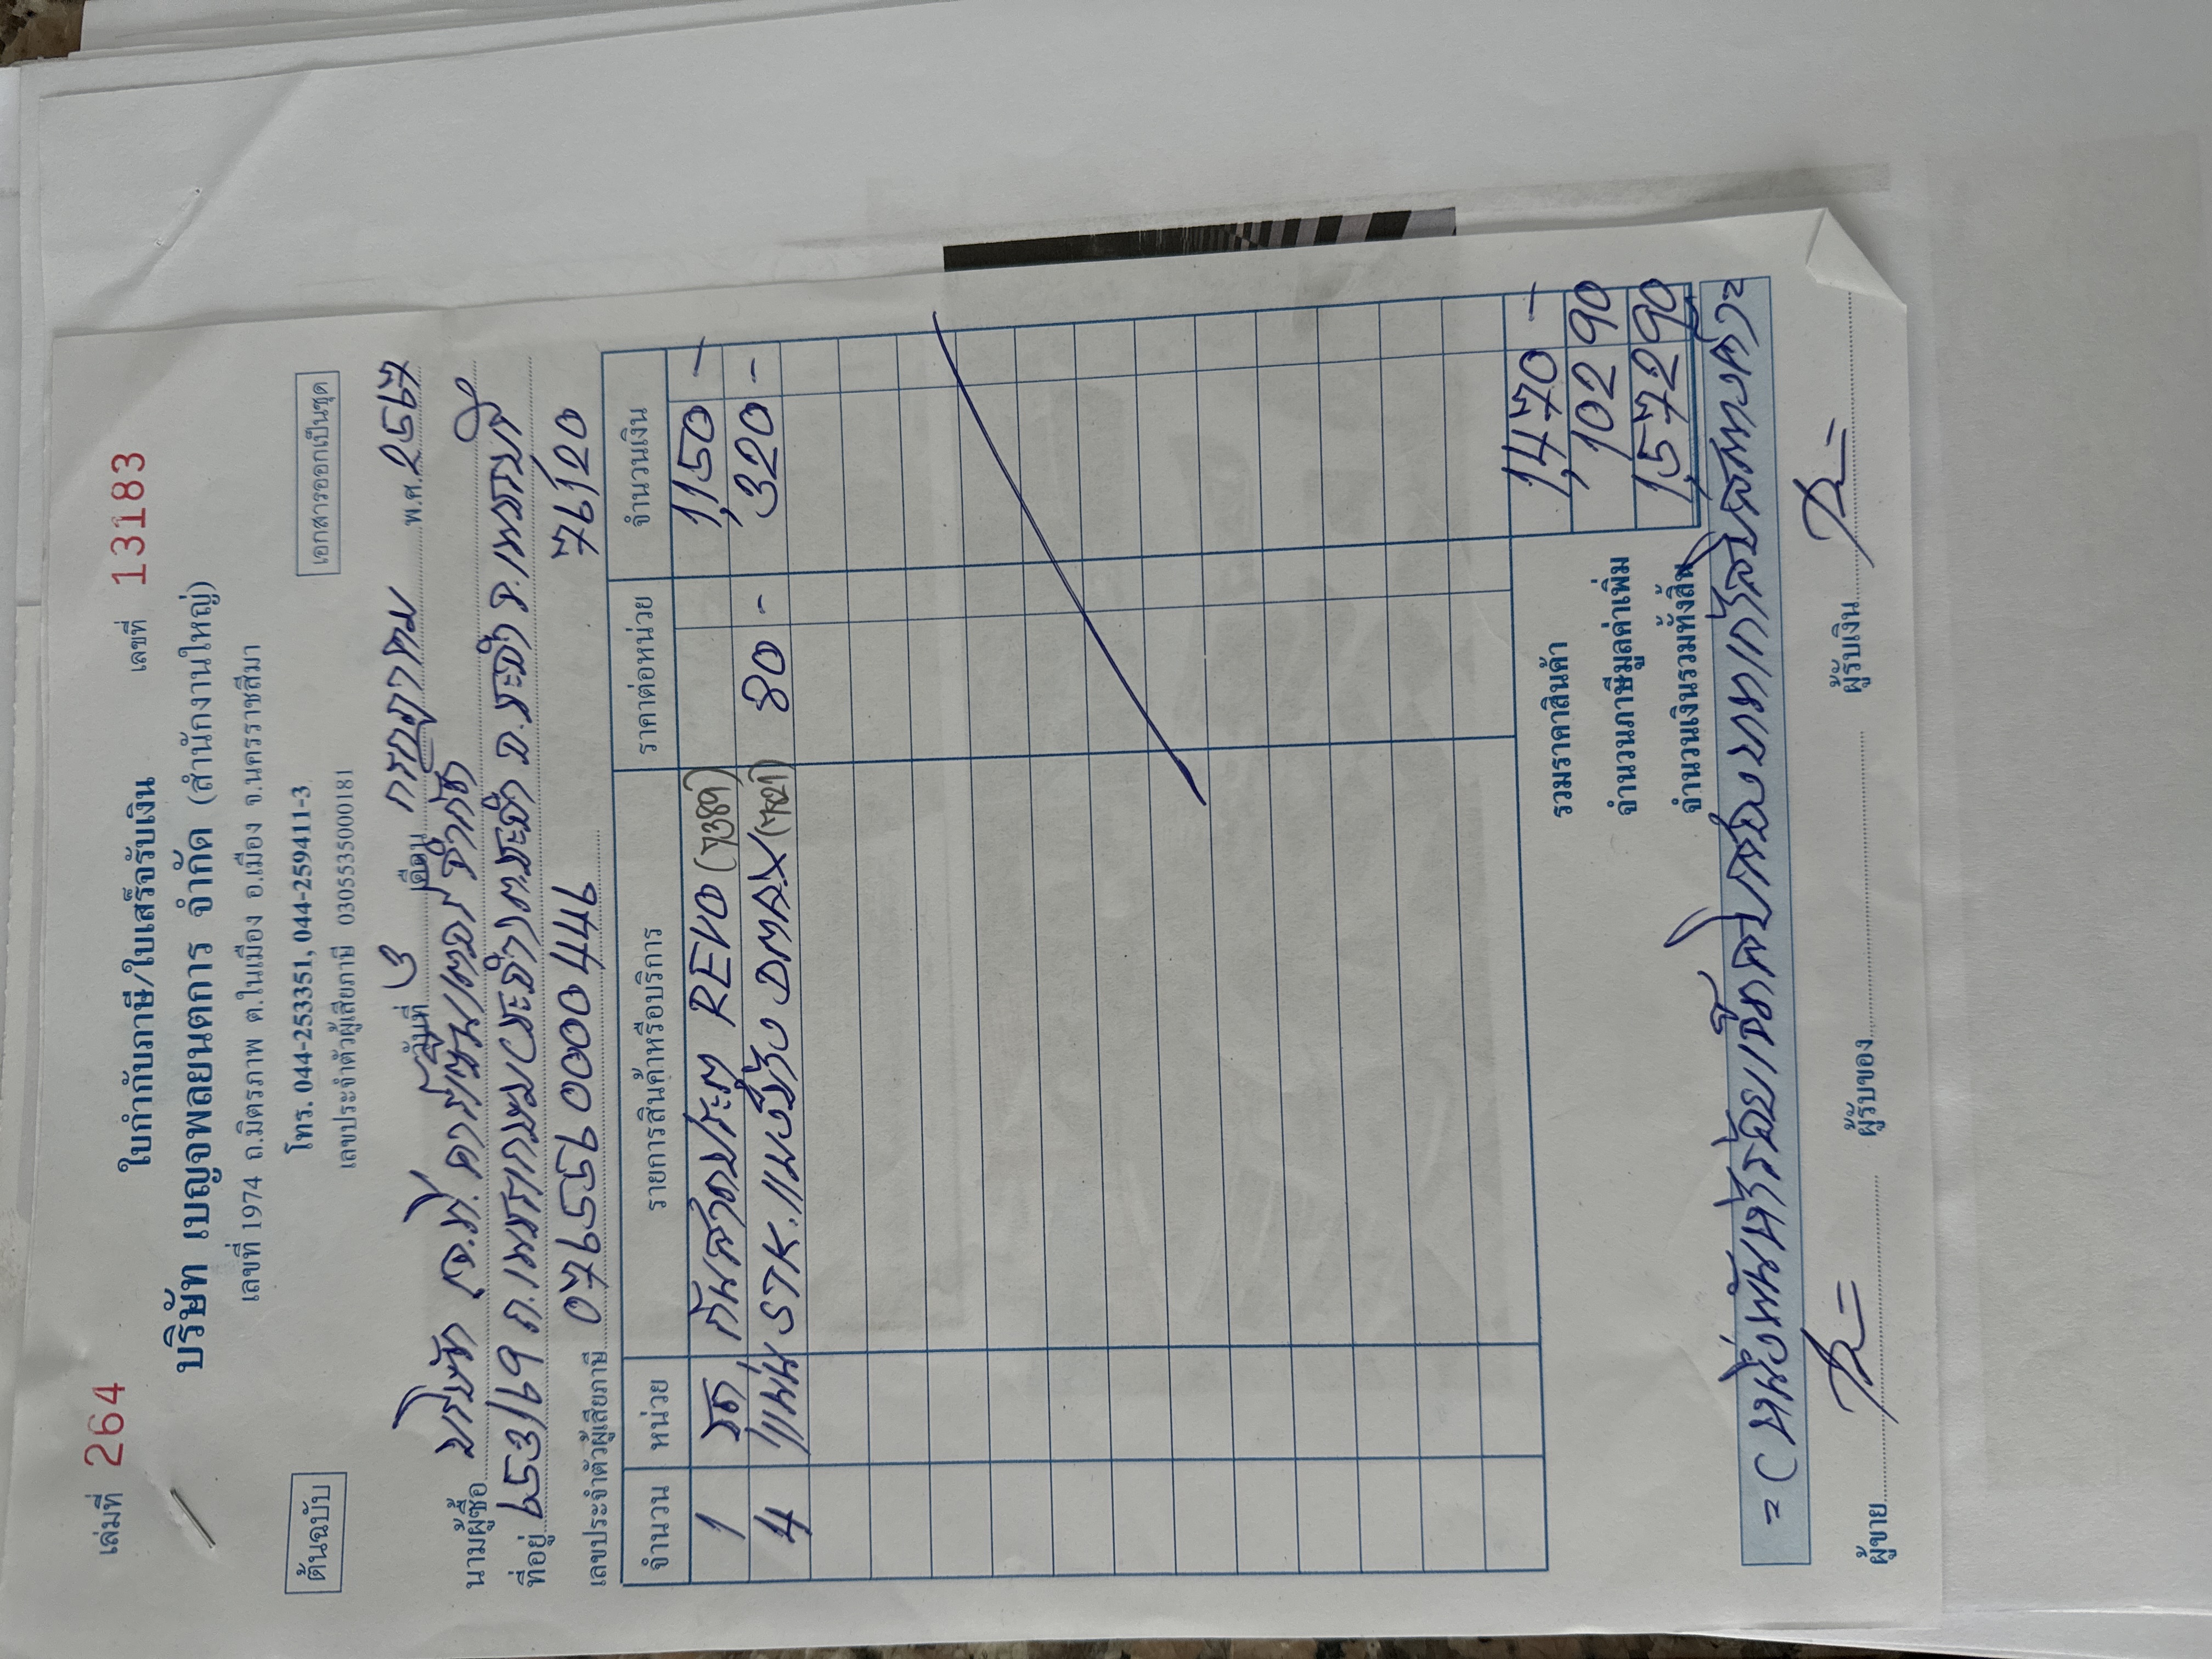 เล่มที่ 264 ใบกำกับภาษี/ใบเสร็จรับเงิน เลขที่ 13183
บริษัท เบญจพลยนตการ จำกัด (สำนักงานใหญ่)
เลขที่ 1974 ถ.มิตรภาพ ต.ในเมือง อ.เมือง จ.นครราชสีมา
ต้นฉบับ โทร. 044-253351, 044-259411-3 เอกสารออกเป็นชุด
เลขประจำตัวผู้เสียภาษี 0305535000181
วันที่ 3 เดือน กรกฎาคม พ.ศ. 2567
นามผู้ซื้อ บริษัท จำกัด
ที่อยู่ 953/19 ถ.เพชรเกษม ต.ชะอำ อ.ชะอำ จ.เพชรบุรี
เลขประจำตัวผู้เสียภาษี 76120
จำนวน หน่วย รายการสินค้าหรือบริการ ราคาต่อหน่วย จำนวนเงิน
1 ชุด กันสาดประตู REVO (7389) 1,150 -
4 แผ่น STK. DMAX (7821) 80 - 320 -
รวมราคาสินค้า 1,470 -
จำนวนภาษีมูลค่าเพิ่ม 102 90
จำนวนเงินรวมทั้งสิ้น 1,572 90
=(หนึ่งพันห้าร้อยเจ็ดสิบสองบาทเก้าสิบสตางค์)=
ผู้ขาย ผู้รับของ ผู้รับเงิน